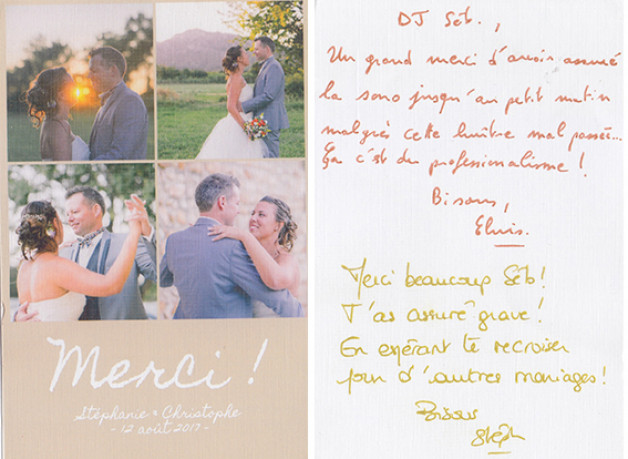 Merci !
Stéphanie & Christophe
- 12 août 2017 -
DJ Séb.,
Un grand merci d'avoir assuré
la sono jusqu'au petit matin
malgré cette huître mal passée...
Ça c'est du professionalisme !
Bisous,
Elvis.
Merci beaucoup Séb !
T'as assuré grave !
En espérant te recroiser
pour d'autres mariages !
Bisous
Stéph